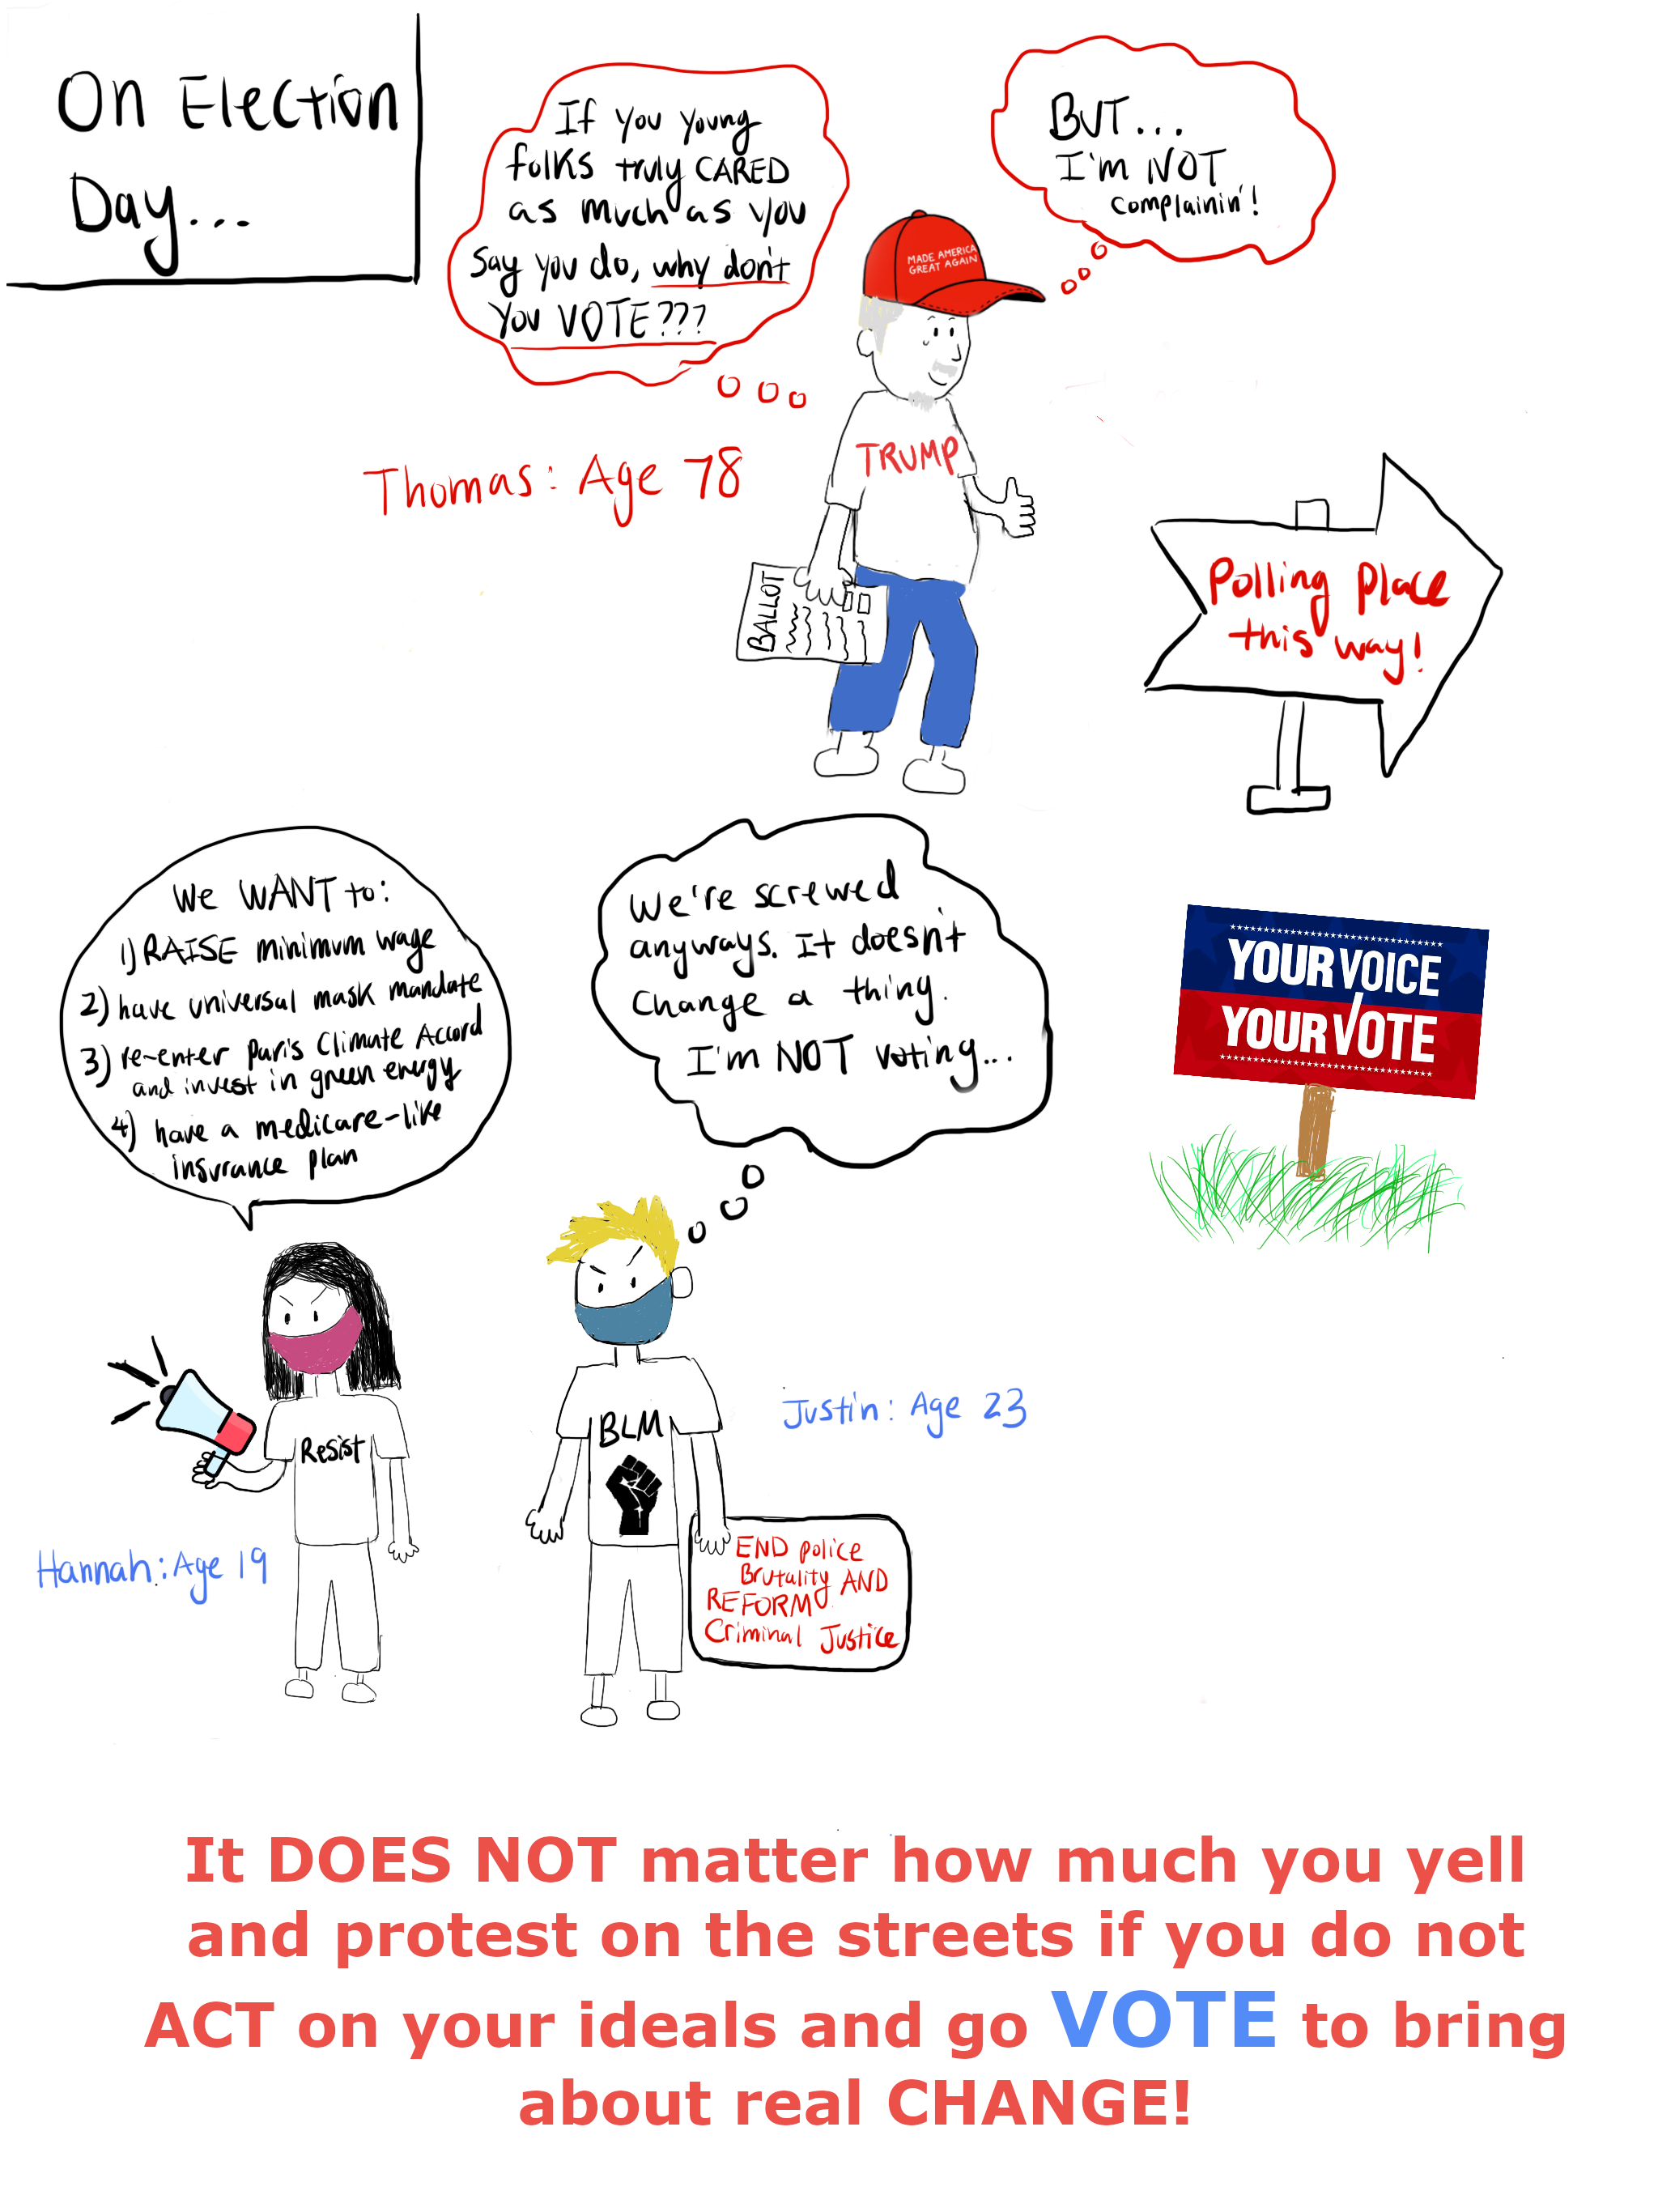 On Election
Day...
If you young
folks truly CARED
as much as you
say you do, why don't
you VOTE???
BUT...
I'm NOT
complainin'!
MADE AMERICA
GREAT AGAIN
TRUMP
Thomas: Age 78
BALLOT
Polling Place
this way!
We WANT to:
1) RAISE minimum wage
2) have universal mask mandate
3) re-enter Paris Climate Accord
and invest in green energy
4) have a medicare-like
insurance plan
We're screwed
anyways. It doesn't
change a thing.
I'm NOT voting...
YOUR VOICE
YOUR VOTE
Resist
Hannah: Age 19
BLM
Justin: Age 23
END police
Brutality AND
REFORM
Criminal Justice
It DOES NOT matter how much you yell
and protest on the streets if you do not
ACT on your ideals and go VOTE to bring
about real CHANGE!